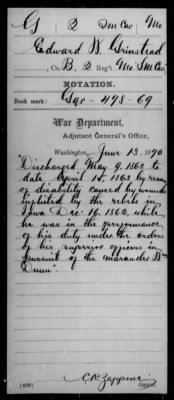 G 2 S M Cav Mo
Edward W. Grinstead
Co. B, 2 Reg't Mo S M Cav
NOTATION.
Book mark: 498-69
War Department,
Adjutant General's Office,
Washington, June 13, 1890
Discharged May 9, 1863 to
date April 15, 1863 by reason
of disability caused by wound
inflicted by the rebels in
Iowa Dec. 16, 1862, while
he was in the performance
of his duty under the orders
of his superior officers in
pursuit of the marauder Wm
Dunn.
Copyist.